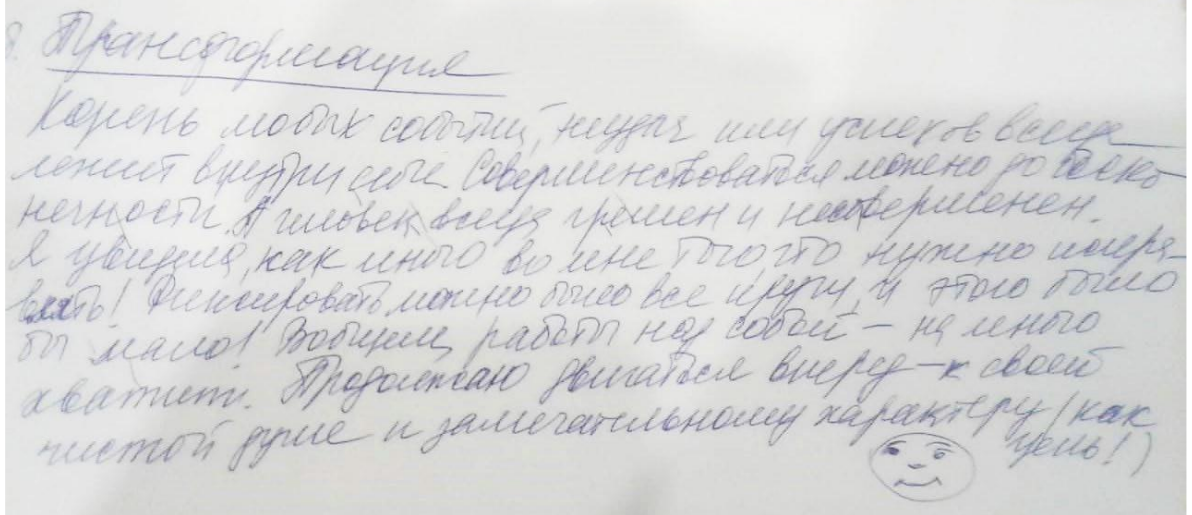 8. Трансформация
Корень любых событий, неудач или успехов всегда
лежит внутри себя. Совершенствоваться можно до беско-
нечности. А человек всегда грешен и несовершенен.
Я увидела, как много во мне того, что нужно исправ-
влять! Фиксировать можно было все круги, и этого было
бы мало! Вобщем, работы над собой – на много
хватит. Продолжаю двигаться вперед – к своей
чистой душе и замечательному характеру (как
цель!)